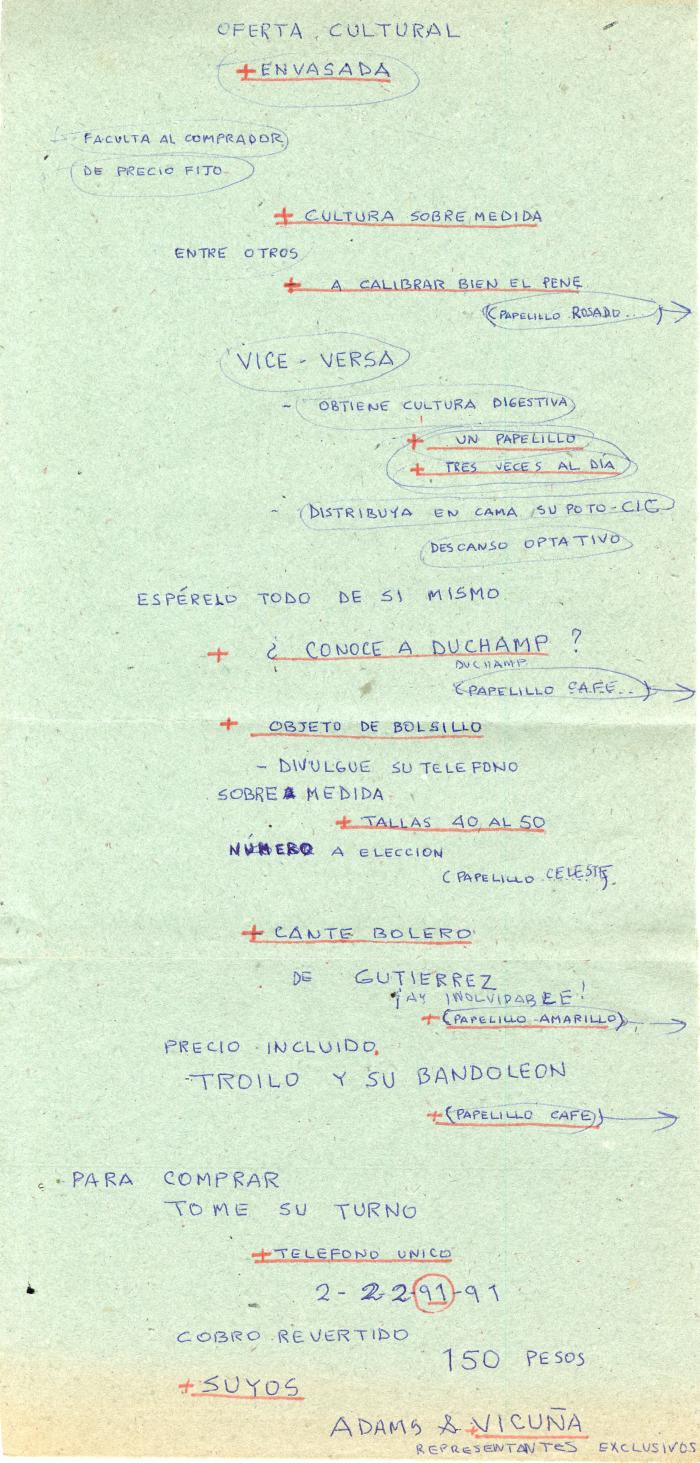 OFERTA CULTURAL
+ ENVASADA
- FACULTA AL COMPRADOR
DE PRECIO FIJO
+ CULTURA SOBRE MEDIDA
ENTRE OTROS
+ A CALIBRAR BIEN EL PENE
(PAPELILLO ROSADO...) →
VICE - VERSA
- OBTIENE CULTURA DIGESTIVA
+ UN PAPELILLO
+ TRES VECES AL DÍA
- DISTRIBUYA EN CAMA SU POTO-CIC
DESCANSO OPTATIVO
ESPÉRELO TODO DE SI MISMO
+ ¿ CONOCE A DUCHAMP ?
DUCHAMP
(PAPELILLO CAFE..) →
+ OBJETO DE BOLSILLO
- DIVULGUE SU TELEFONO
SOBRE MEDIDA
+ TALLAS 40 AL 50
NÚMERO A ELECCION
(PAPELILLO CELESTE)
+ CANTE BOLERO
DE GUTIERREZ
¡AY INOLVIDABLE!
+ (PAPELILLO AMARILLO) →
PRECIO INCLUIDO.
- TROILO Y SU BANDOLEON
+ (PAPELILLO CAFE) →
PARA COMPRAR
TOME SU TURNO
+ TELEFONO UNICO
2-22-91-91
COBRO REVERTIDO
150 PESOS
+ SUYOS
ADAMS & VICUÑA
REPRESENTANTES EXCLUSIVOS